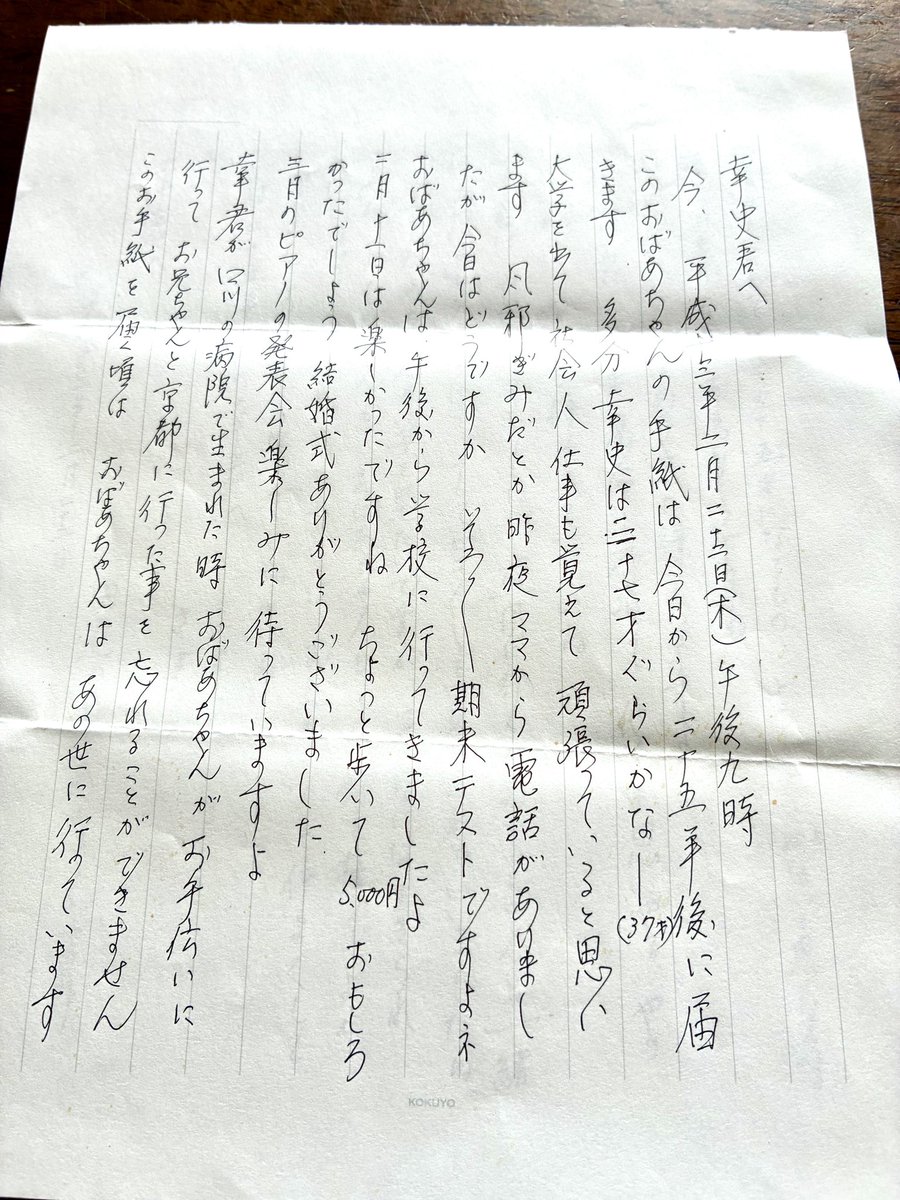 幸史君へ
今、平成十三年二月二十二日(木)午後九時
このおばあちゃんの手紙は 今日から二十五年後に届
きます 多分幸史は三十七才ぐらいかなー(37才)
大学を出て社会人 仕事も覚えて 頑張っていると思い
ます 風邪ぎみだとか昨夜ママから電話がありまし
たが今日はどうですか 期末テストですよネ
おばあちゃんは、午後から学校に行ってきましたよ
二月十一日は楽しかったですね ちょっと歩いて5,000円 おもしろ
かったでしょう 結婚式ありがとうございました
三月のピアノの発表会楽しみに 待っていますよ
幸君が 川の病院で生まれた時 おばあちゃんが お手伝いに
行って お兄ちゃんと京都に行った事を 忘れることができません
このお手紙を 届く頃は おばあちゃんは あの世に行っています
KOKUYO